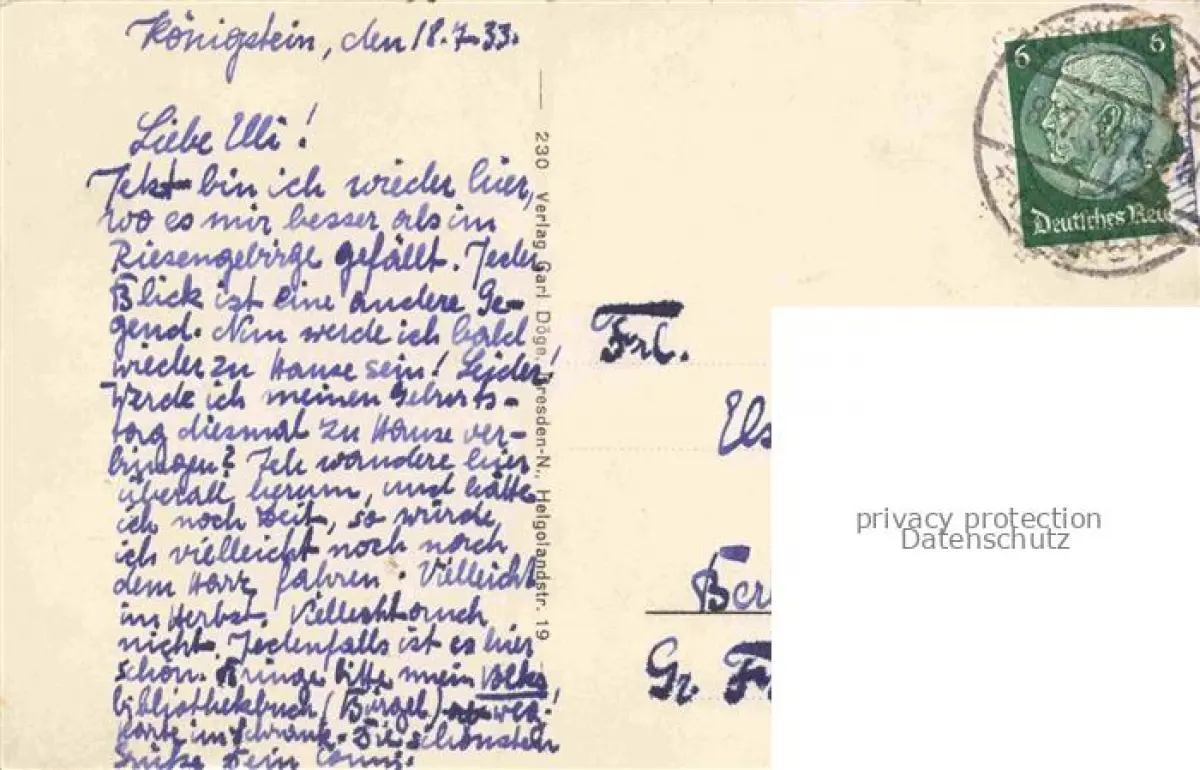 Königstein, den 18.7.33.
Liebe Elli!
Jetzt bin ich wieder hier,
wo es mir besser als im
Riesengebirge gefällt. Jeder
Blick ist eine andere Ge-
gend. Nun werde ich bald
wieder zu Hause sein! Leider!
Werde ich meinen Geburts-
tag diesmal zu Hause ver-
bringen? Ich wandere hier
überall herum, und hätte
ich noch Zeit, so würde
ich vielleicht noch nach
dem Harz fahren. Vielleicht
im Herbst. Vielleicht auch
nicht. Jedenfalls ist es hier
schön. Bringe bitte mein
bibliotheksbuch (Bürgel) weg.
Karte im Schrank. Die schönsten
Grüße Dein
230 Verlag Carl Döge, Dresden-N., Helgolandstr. 19
6 6
Deutsches Reic
Frl.
Els
Ber
Gr. F
privacy protection
Datenschutz